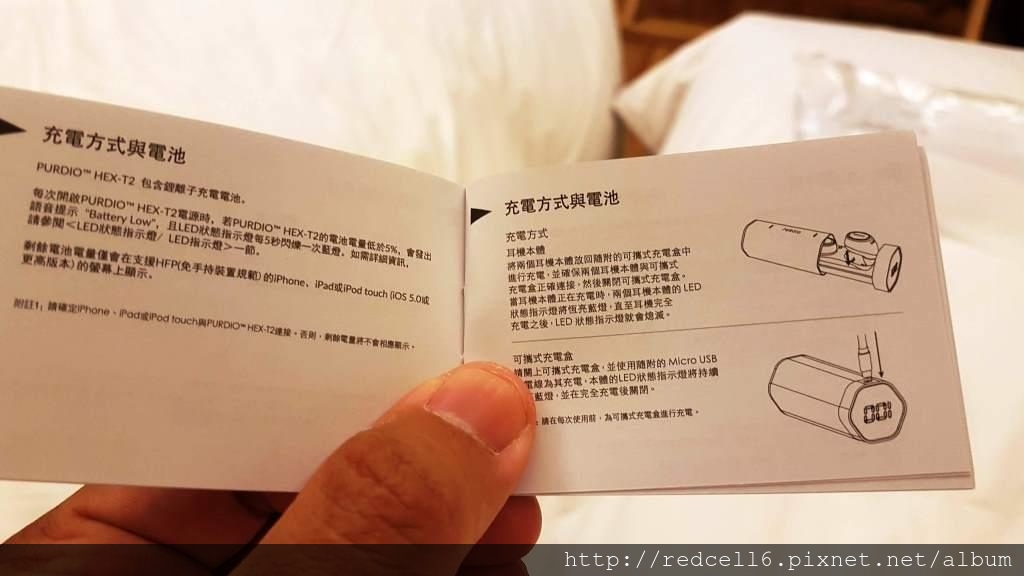 充電方式與電池
PURDIO™ HEX-T2 包含鋰離子充電電池。
每次開啟PURDIO™ HEX-T2電源時，若PURDIO™ HEX-T2的電池電量低於5%，會發出
語音提示“Battery Low”，且LED狀態指示燈每5秒閃爍一次藍燈。如需詳細資訊，
請參閱＜LED狀態指示燈/ LED指示燈＞一節。
剩餘電池電量僅會在支援HFP(免手持裝置規範) 的iPhone、iPad或iPod touch (iOS 5.0或
更高版本) 的螢幕上顯示。
附註1：請確定iPhone、iPad或iPod touch與PURDIO™ HEX-T2連接。否則，剩餘電量將不會相應顯示。
充電方式與電池
充電方式
耳機本體
將兩個耳機本體放回隨附的可攜式充電盒中
進行充電，並確保兩個耳機本體與可攜式
充電盒正確連接，然後關閉可攜式充電盒。
當耳機本體正在充電時，兩個耳機本體的 LED
狀態指示燈將恆亮藍燈，直至耳機完全
充電之後，LED 狀態指示燈就會熄滅。
可攜式充電盒
請關上可攜式充電盒，並使用隨附的 Micro USB
電線為其充電，本體的LED狀態指示燈將持續
藍燈，並在完全充電後關閉。
：請在每次使用前，為可攜式充電盒進行充電。
http://redcell6.pixnet.net/album